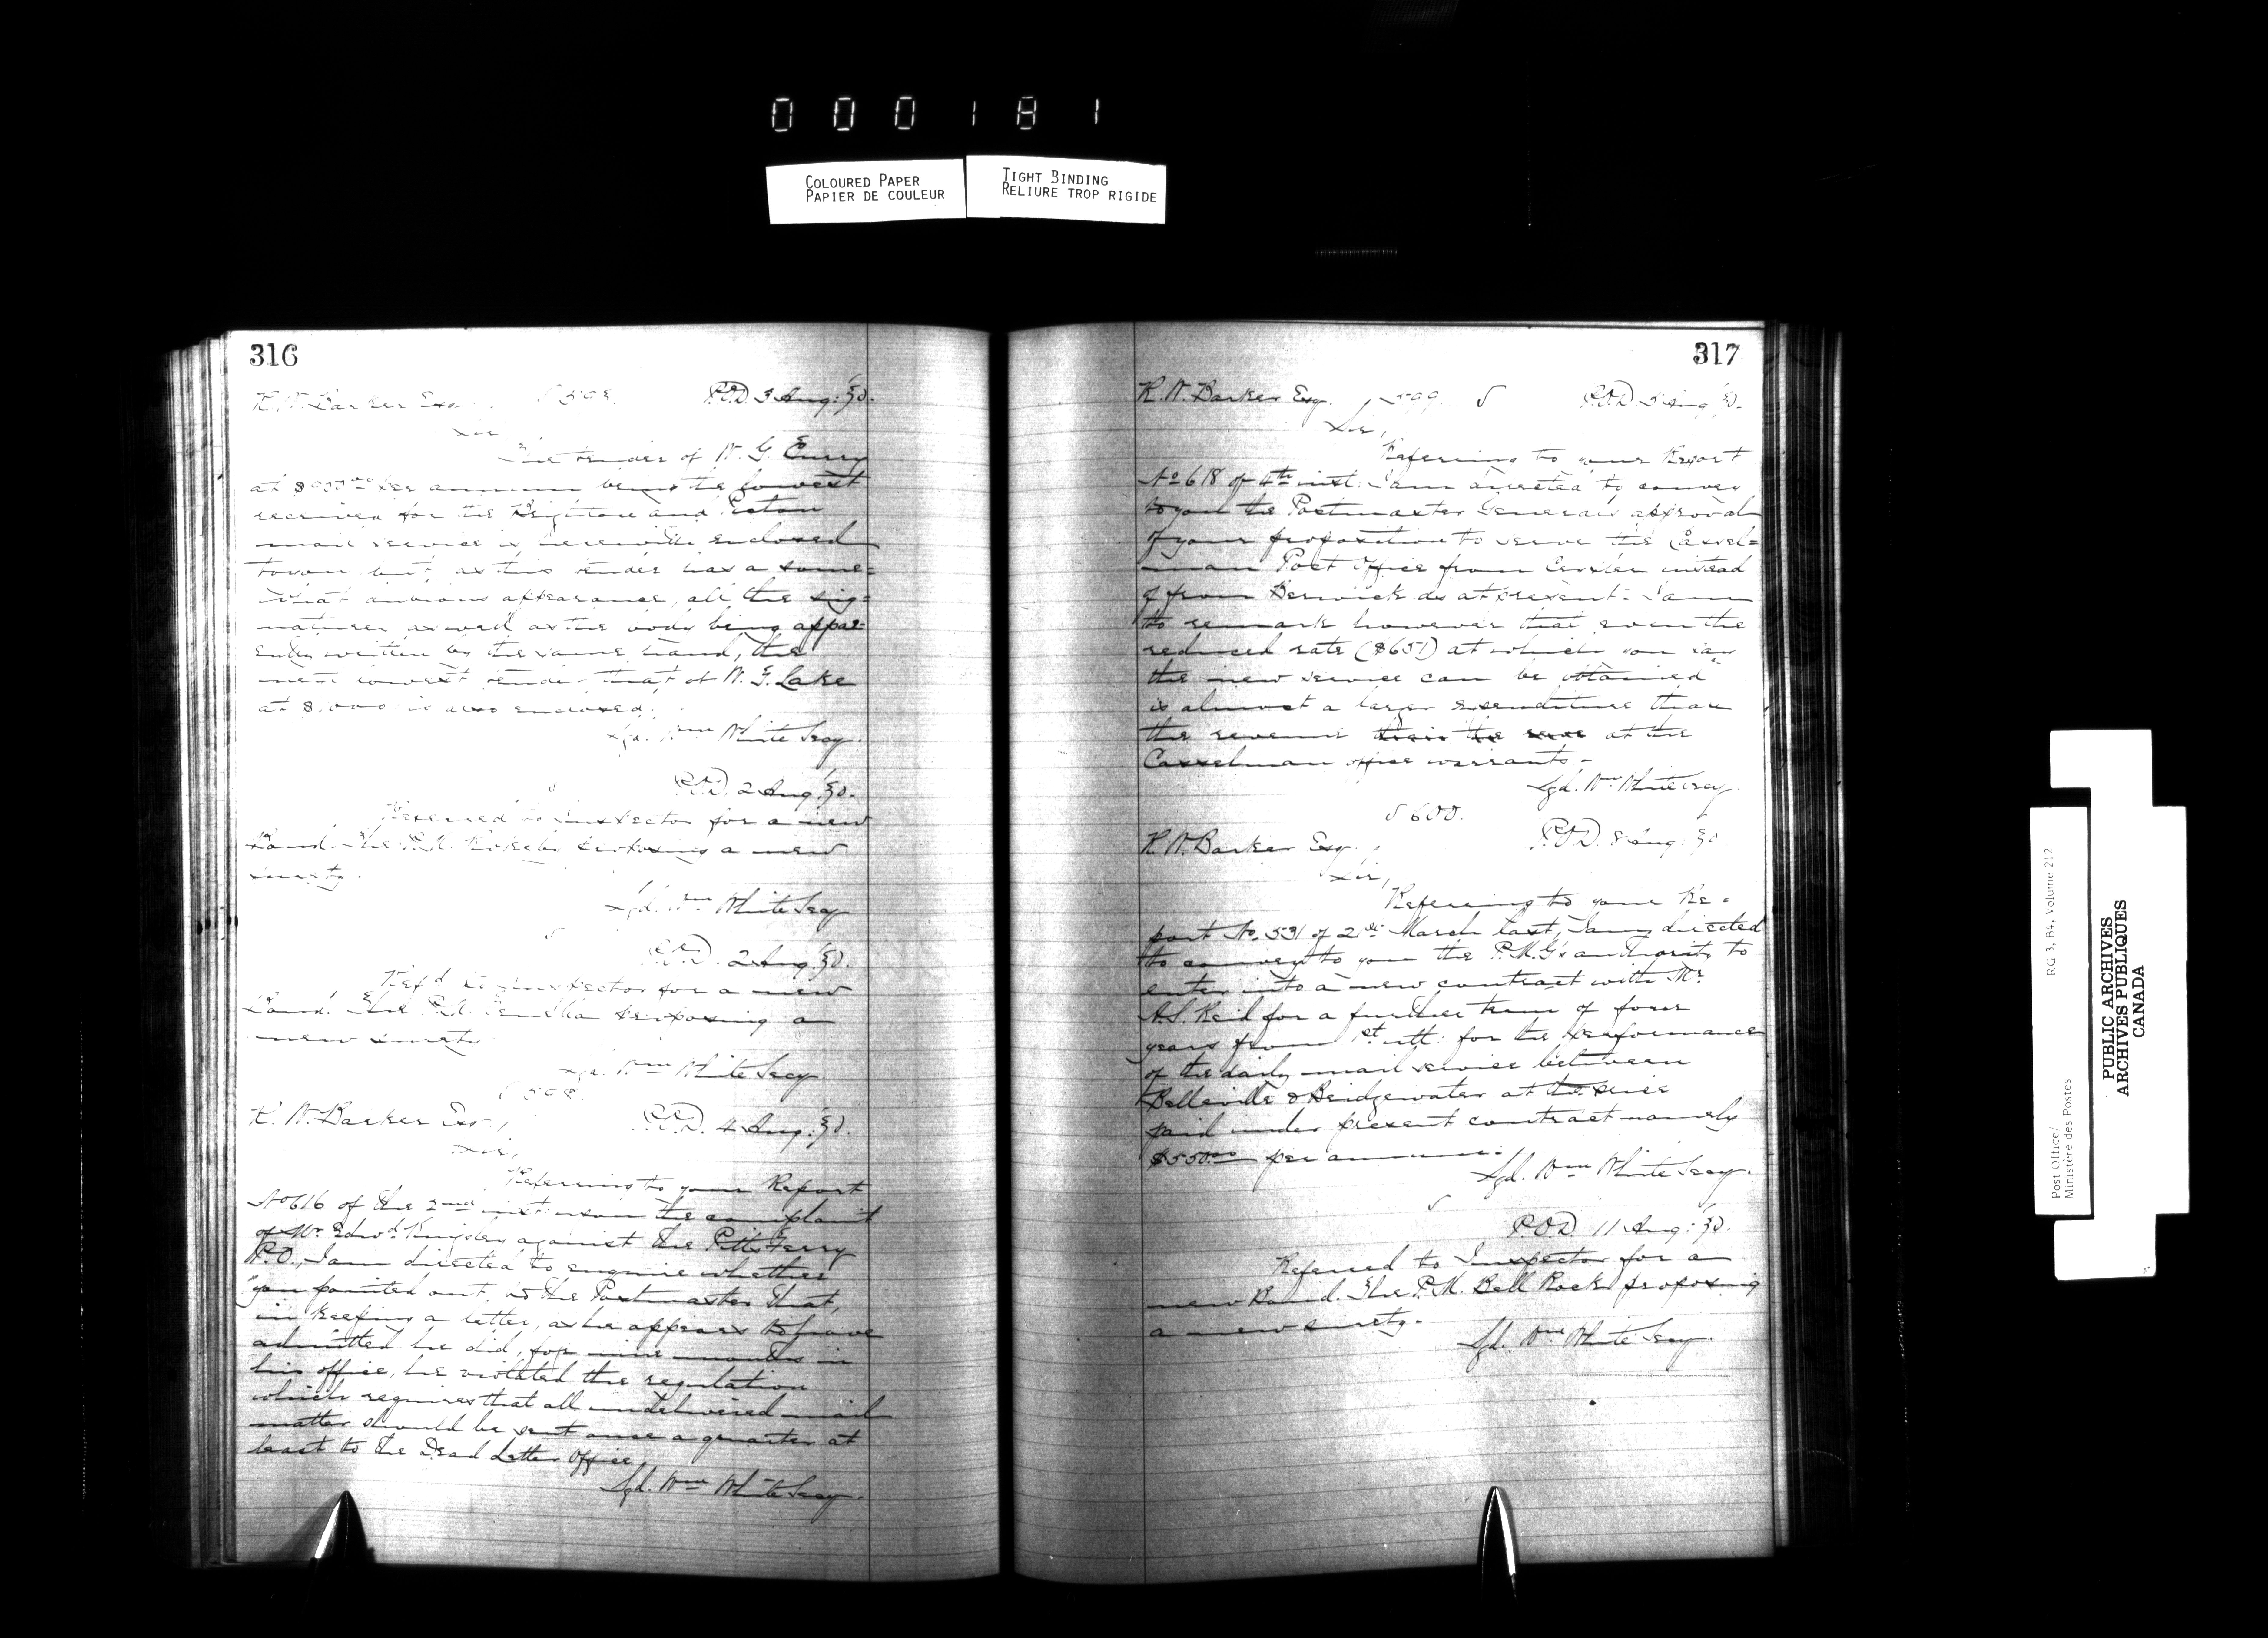 000181
COLOURED PAPER
PAPIER DE COULEUR
TIGHT BINDING
RELIURE TROP RIGIDE
316
R. W. Barker Esq. 598 P.O.D. 3 Aug: '80.
Sir,
The tender of W. G. Curry
per annum being the lowest
received for the Brighton and Picton
mail service is herewith enclosed
but, as this tender has a some=
what appearance, all the sig=
natures as well as the body being appar=
ently written by the same hand, the
next lowest tender that of W. G. Lake
at is also enclosed.
Sgd. Wm White Secy.
P.O.D. 2 Aug. '80.
Referred to Inspector for a new
Bond. The P.M. proposing a new
surety.
Sgd. Wm White Secy
P.O.D. 2 Aug. '80.
Ref'd to Inspector for a new
Bond. The P.M. proposing a
new surety.
Sgd. Wm White Secy.
598.
R. W. Barker Esq., P.O.D. 4 Aug: '80.
Sir,
Referring to your Report
No 616 of the 2nd inst upon the complaint
of Mr Edwd Kingsley against the Pitts Ferry
P.O., I am directed to enquire whether
you pointed out, to the Postmaster that,
in keeping a letter, as he appears to have
admitted he did, for nine months in
his office, he violated the regulation
which requires that all undelivered mail
matter should be sent once a quarter at
least to the Dead Letter Office.
Sgd. Wm White Secy.
317
R. W. Barker Esq. 599. P.O.D. 5 Aug. '80.
Sir,
Referring to your Report
No 618 of 4th inst: I am directed to convey
to you the Postmaster General's approval
of your proposition to serve the Cassel=
man Post Office from instead
of from Berwick as at present. I am
to remark however that even the
reduced rate ($651) at which you say
the new service can be obtained
is almost a larger expenditure than
the revenue at the
Casselman office warrants.
Sgd. Wm White Secy.
600.
R. W. Barker Esq. P.O.D. 8 Aug: '80.
Sir,
Referring to your Re=
port No. 531 of March last, I am directed
to convey to you the P.M.G's authority to
enter into a new contract with Mr
A. S. Reid for a further term of four
years from 1st ult: for the performance
of the daily mail service between
Belleville & Bridgewater at the price
paid under present contract namely
$550.00 per annum.
Sgd. Wm White Secy.
P.O.D. 11 Aug: '80.
Referred to Inspector for a
new Bond. The P.M. Bell Rock proposing
a new surety.
Sgd. Wm White Secy.
Post Office/ RG 3, B4, Volume 212
Ministère des Postes
PUBLIC ARCHIVES
ARCHIVES PUBLIQUES
CANADA